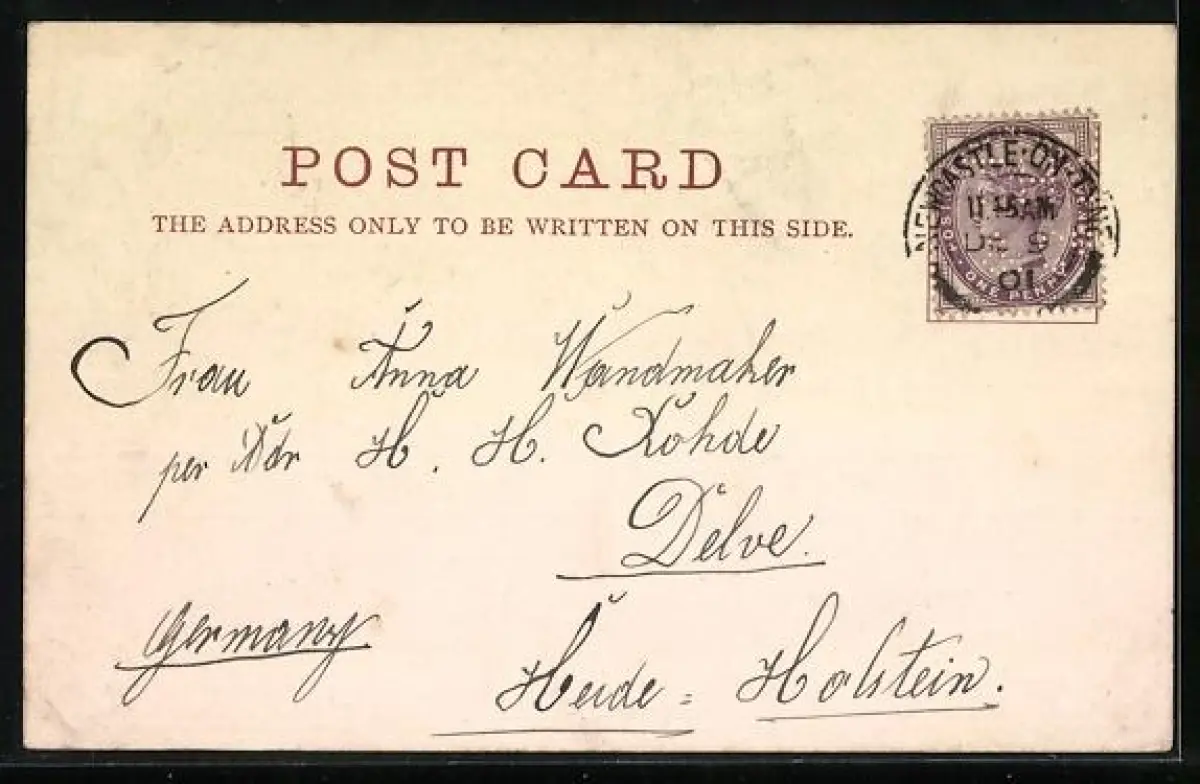 POST CARD
THE ADDRESS ONLY TO BE WRITTEN ON THIS SIDE.
NEWCASTLE·ON·TYNE
11.15AM
DE 9
01
ONE PENNY
Frau Anna Wandmaker
per Adr H. H. Rohde
Delve.
Germany
Heide = Holstein.